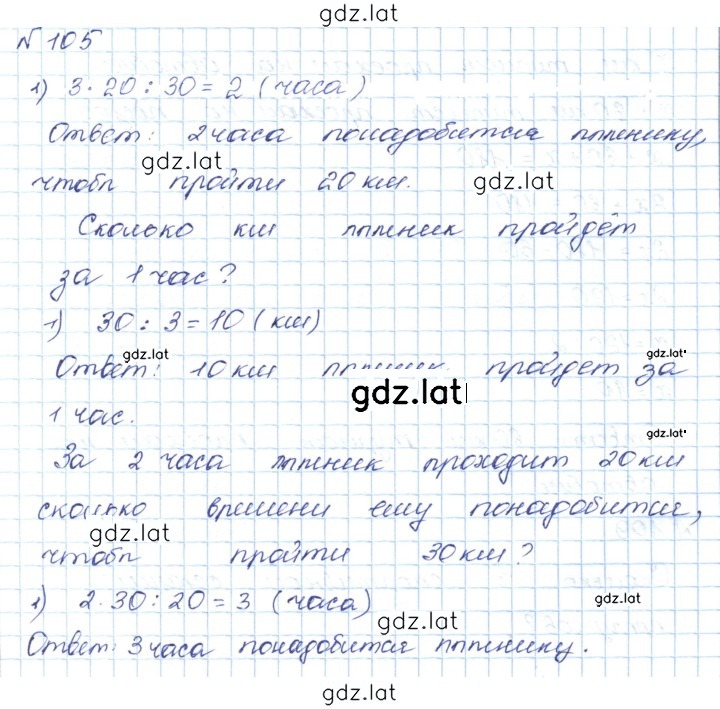 gdz.lat
№ 105
1) 3 · 20 : 30 = 2 (часа)
Ответ: 2 часа понадобится лыжнику,
gdz.lat
чтобы пройти 20 км. gdz.lat
Сколько км лыжник пройдёт
за 1 час?
1) 30 : 3 = 10 (км)
gdz.lat gdz.lat
Ответ: 10 км лыжник пройдет за
gdz.lat
1 час.
gdz.lat
За 2 часа лыжник проходит 20 км
сколько времени ему понадобится,
gdz.lat
чтобы пройти 30 км?
1) 2 · 30 : 20 = 3 (часа) gdz.lat
gdz.lat
Ответ: 3 часа понадобится лыжнику.
gdz.lat